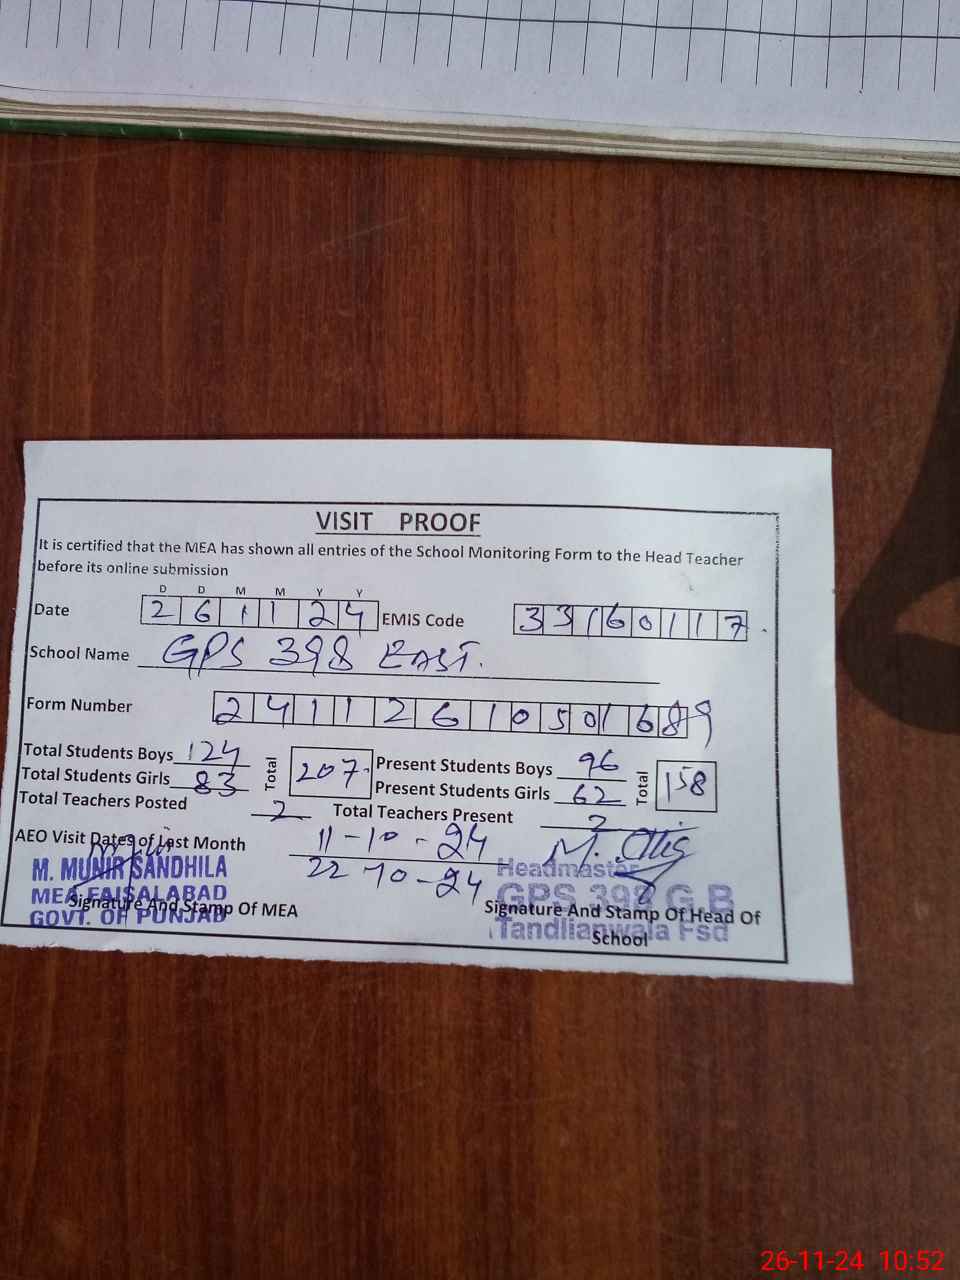 VISIT PROOF
It is certified that the MEA has shown all entries of the School Monitoring Form to the Head Teacher
before its online submission
D D M M Y Y
Date 2 6 1 1 2 4 EMIS Code 3 3 1 6 0 1 1 7
School Name GPS 398 EAST.
Form Number 2 4 1 1 2 6 1 0 5 0 1 6 8 9
Total Students Boys 124 Total 207 Present Students Boys 96 Total 158
Total Students Girls 83 Present Students Girls 62
Total Teachers Posted 2 Total Teachers Present 2
AEO Visit Dates of Last Month 11-10-24
22-10-24
M. MUNIR SANDHILA
MEA FAISALABAD
GOVT. OF PUNJAB
Signature And Stamp Of MEA
Headmaster
GPS 398 G.B
Tandlianwala Fsd
Signature And Stamp Of Head Of
School
26-11-24 10:52